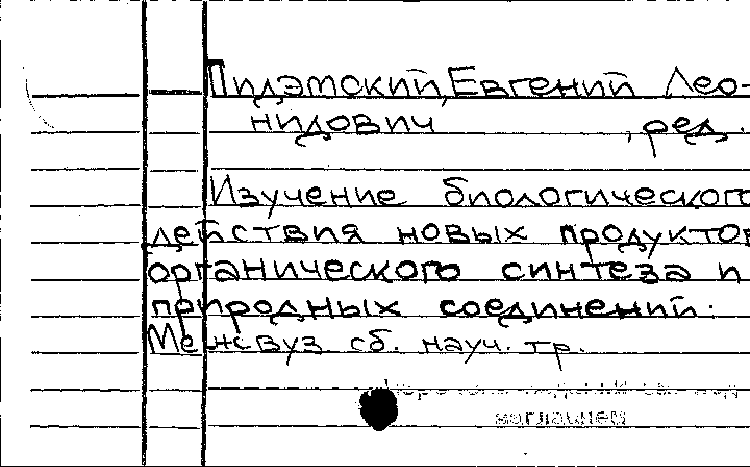 Пидэмский, Евгений Лео-
нидович, ред.
Изучение биологического
действия новых продуктов
органического синтеза и
природных соединений:
Межвуз сб. науч. тр.
заглавием